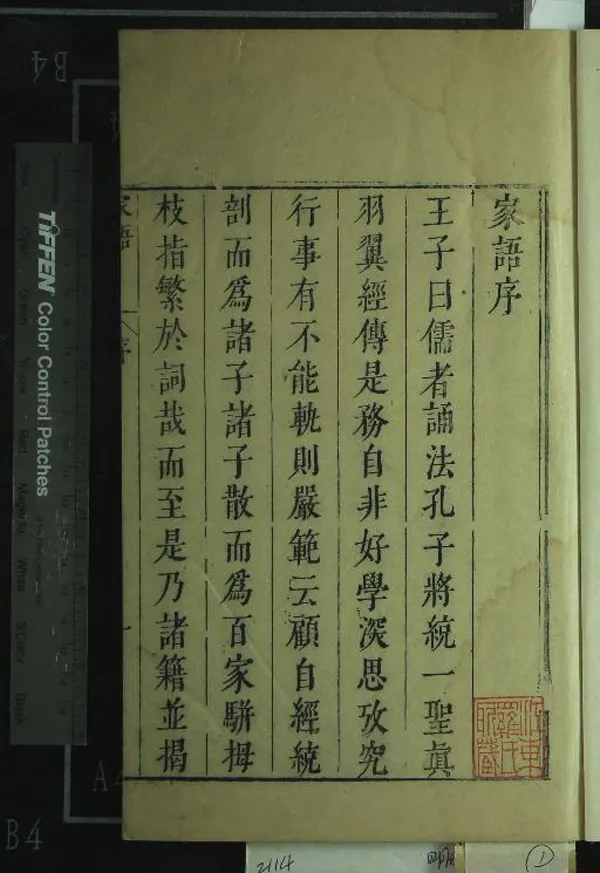 家語序
王子曰儒者誦法孔子將統一聖真
羽翼經傳是務自非好學深思攷究
行事有不能軌則嚴範云顧自經統
剖而為諸子諸子散而為百家駢拇
枝指繁於詞哉而至是乃諸籍並揭
家語
序
一
TIFFEN Color Control Patches
B4
B4
2114
1